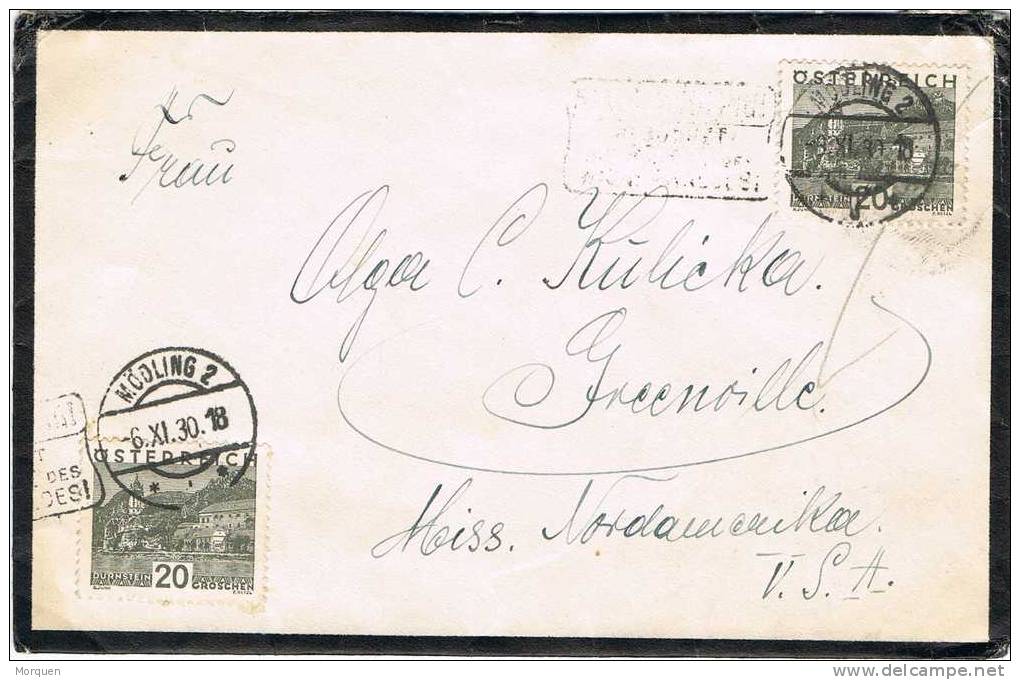 ÖSTERREICH
MÖDLING 2
-6.XI.30.18
20
GROSCHEN
Frau
Olga C. Kulicka.
Greenville.
Miss. Nordamerika.
V. S. A.
MÖDLING 2
-6.XI.30.18
DES
DES!
ÖSTERREICH
DÜRNSTEIN 20 GROSCHEN
Morquen
delcampe.net